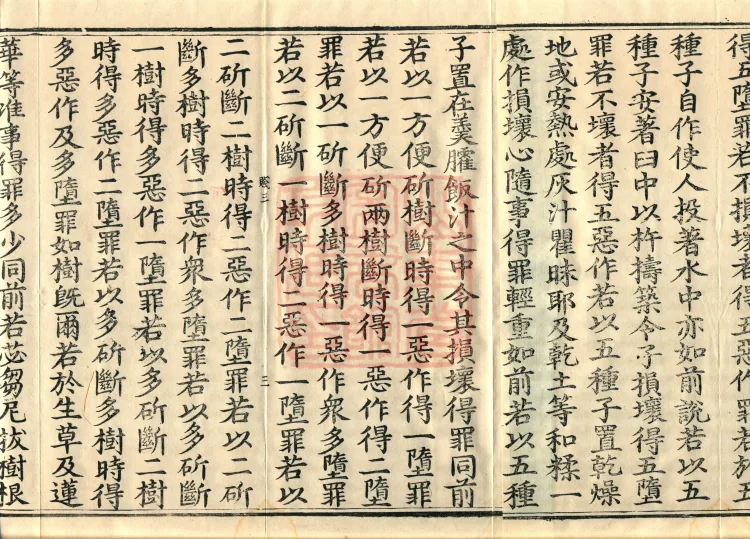 得五墮罪若不損壞者得五惡作若於五
種子自作使人投著水中亦如前說若以五
種子安著臼中以杵擣築令子損壞得五墮
罪若不壞者得五惡作若以五種子置乾燥
地或安熱處灰汁瞿昧耶及乾土等和糅一
處作損壞心隨事得罪輕重如前若以五種
子置在羹臛飯汁之中令其損壞得罪同前
若以一方便斫樹斷時得一惡作得一墮罪
若以一方便斫兩樹斷時得一惡作得二墮
罪若以一斫斷多樹時得一惡作衆多墮罪
若以二斫斷一樹時得二惡作一墮罪若以
賬三
三
二斫斷二樹時得二惡作二墮罪若以二斫
斷多樹時得二惡作衆多墮罪若以多斫斷
一樹時得多惡作一墮罪若以多斫斷二樹
時得多惡作二墮罪若以多斫斷多樹時得
多惡作及多墮罪如樹旣爾若於生草及蓮
華等准事得罪多少同前若苾芻尼拔樹根